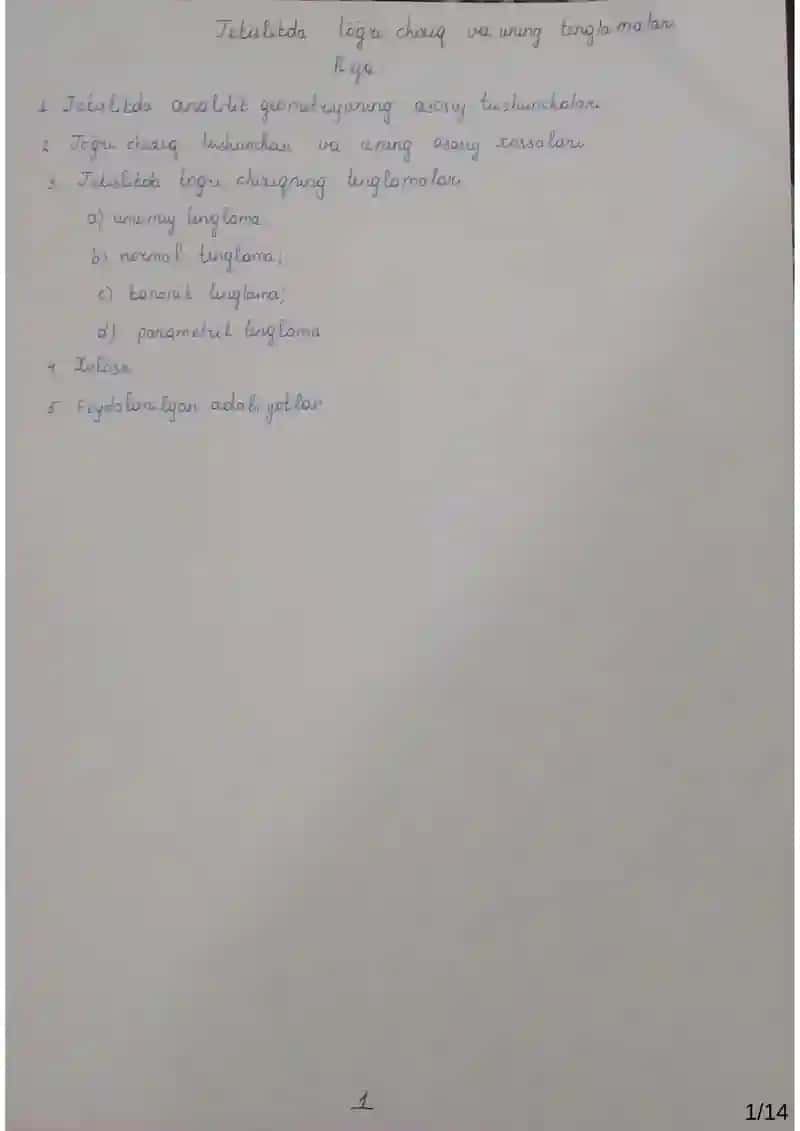 Tekislikda to'g'ri chiziq va uning tenglamalari
Reja
1 Tekislikda analitik geometriyaning asosiy tushunchalari
2 To'g'ri chiziq tushunchasi va uning asosiy xossalari
3 Tekislikda to'g'ri chiziqning tenglamalari
a) umumiy tenglama
b) normal tenglama;
c) kanonik tenglama;
d) parametrik tenglama
4 Xulosa
5 Foydalanilgan adabiyotlar
1
1/14